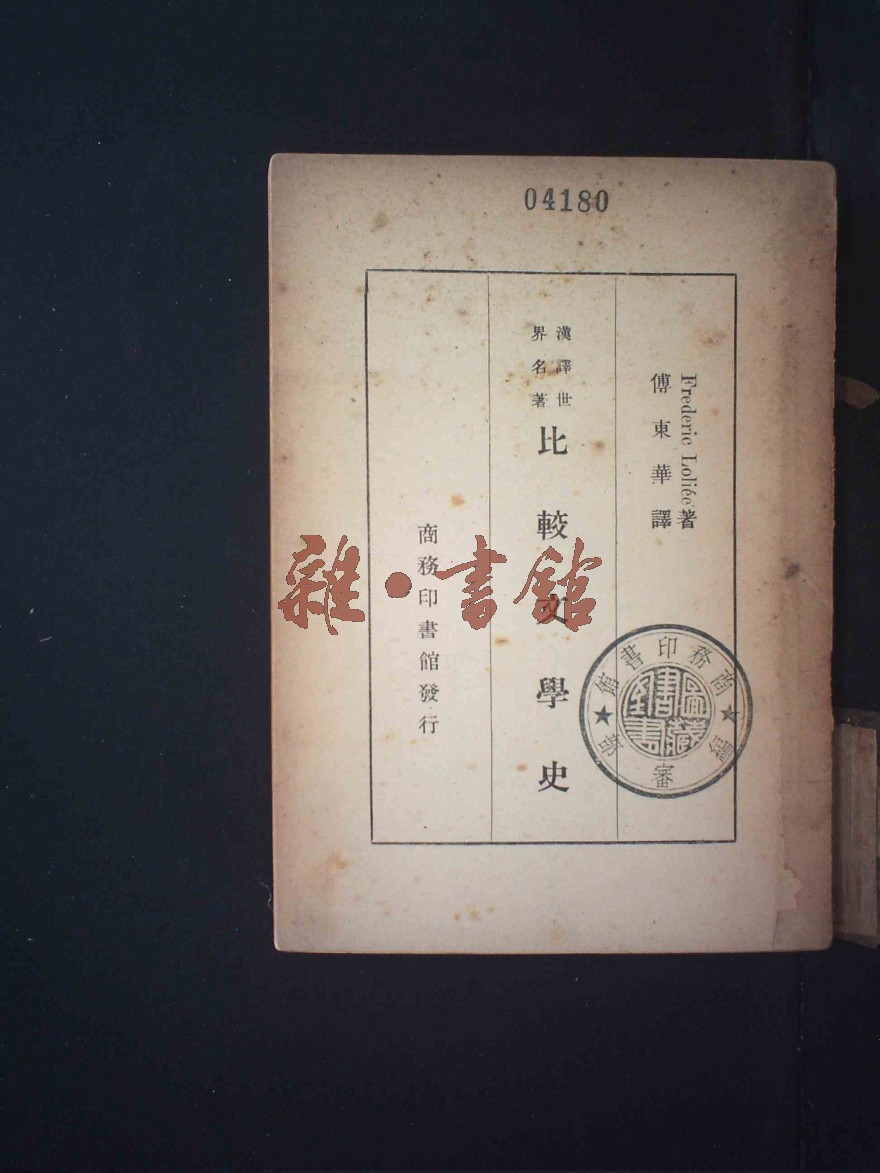 04180
Frederic Loliée著
傅東華譯
漢譯世
界名著
比較文學史
商務印書館發行
雜·書館
商務印書館
編審
圖書